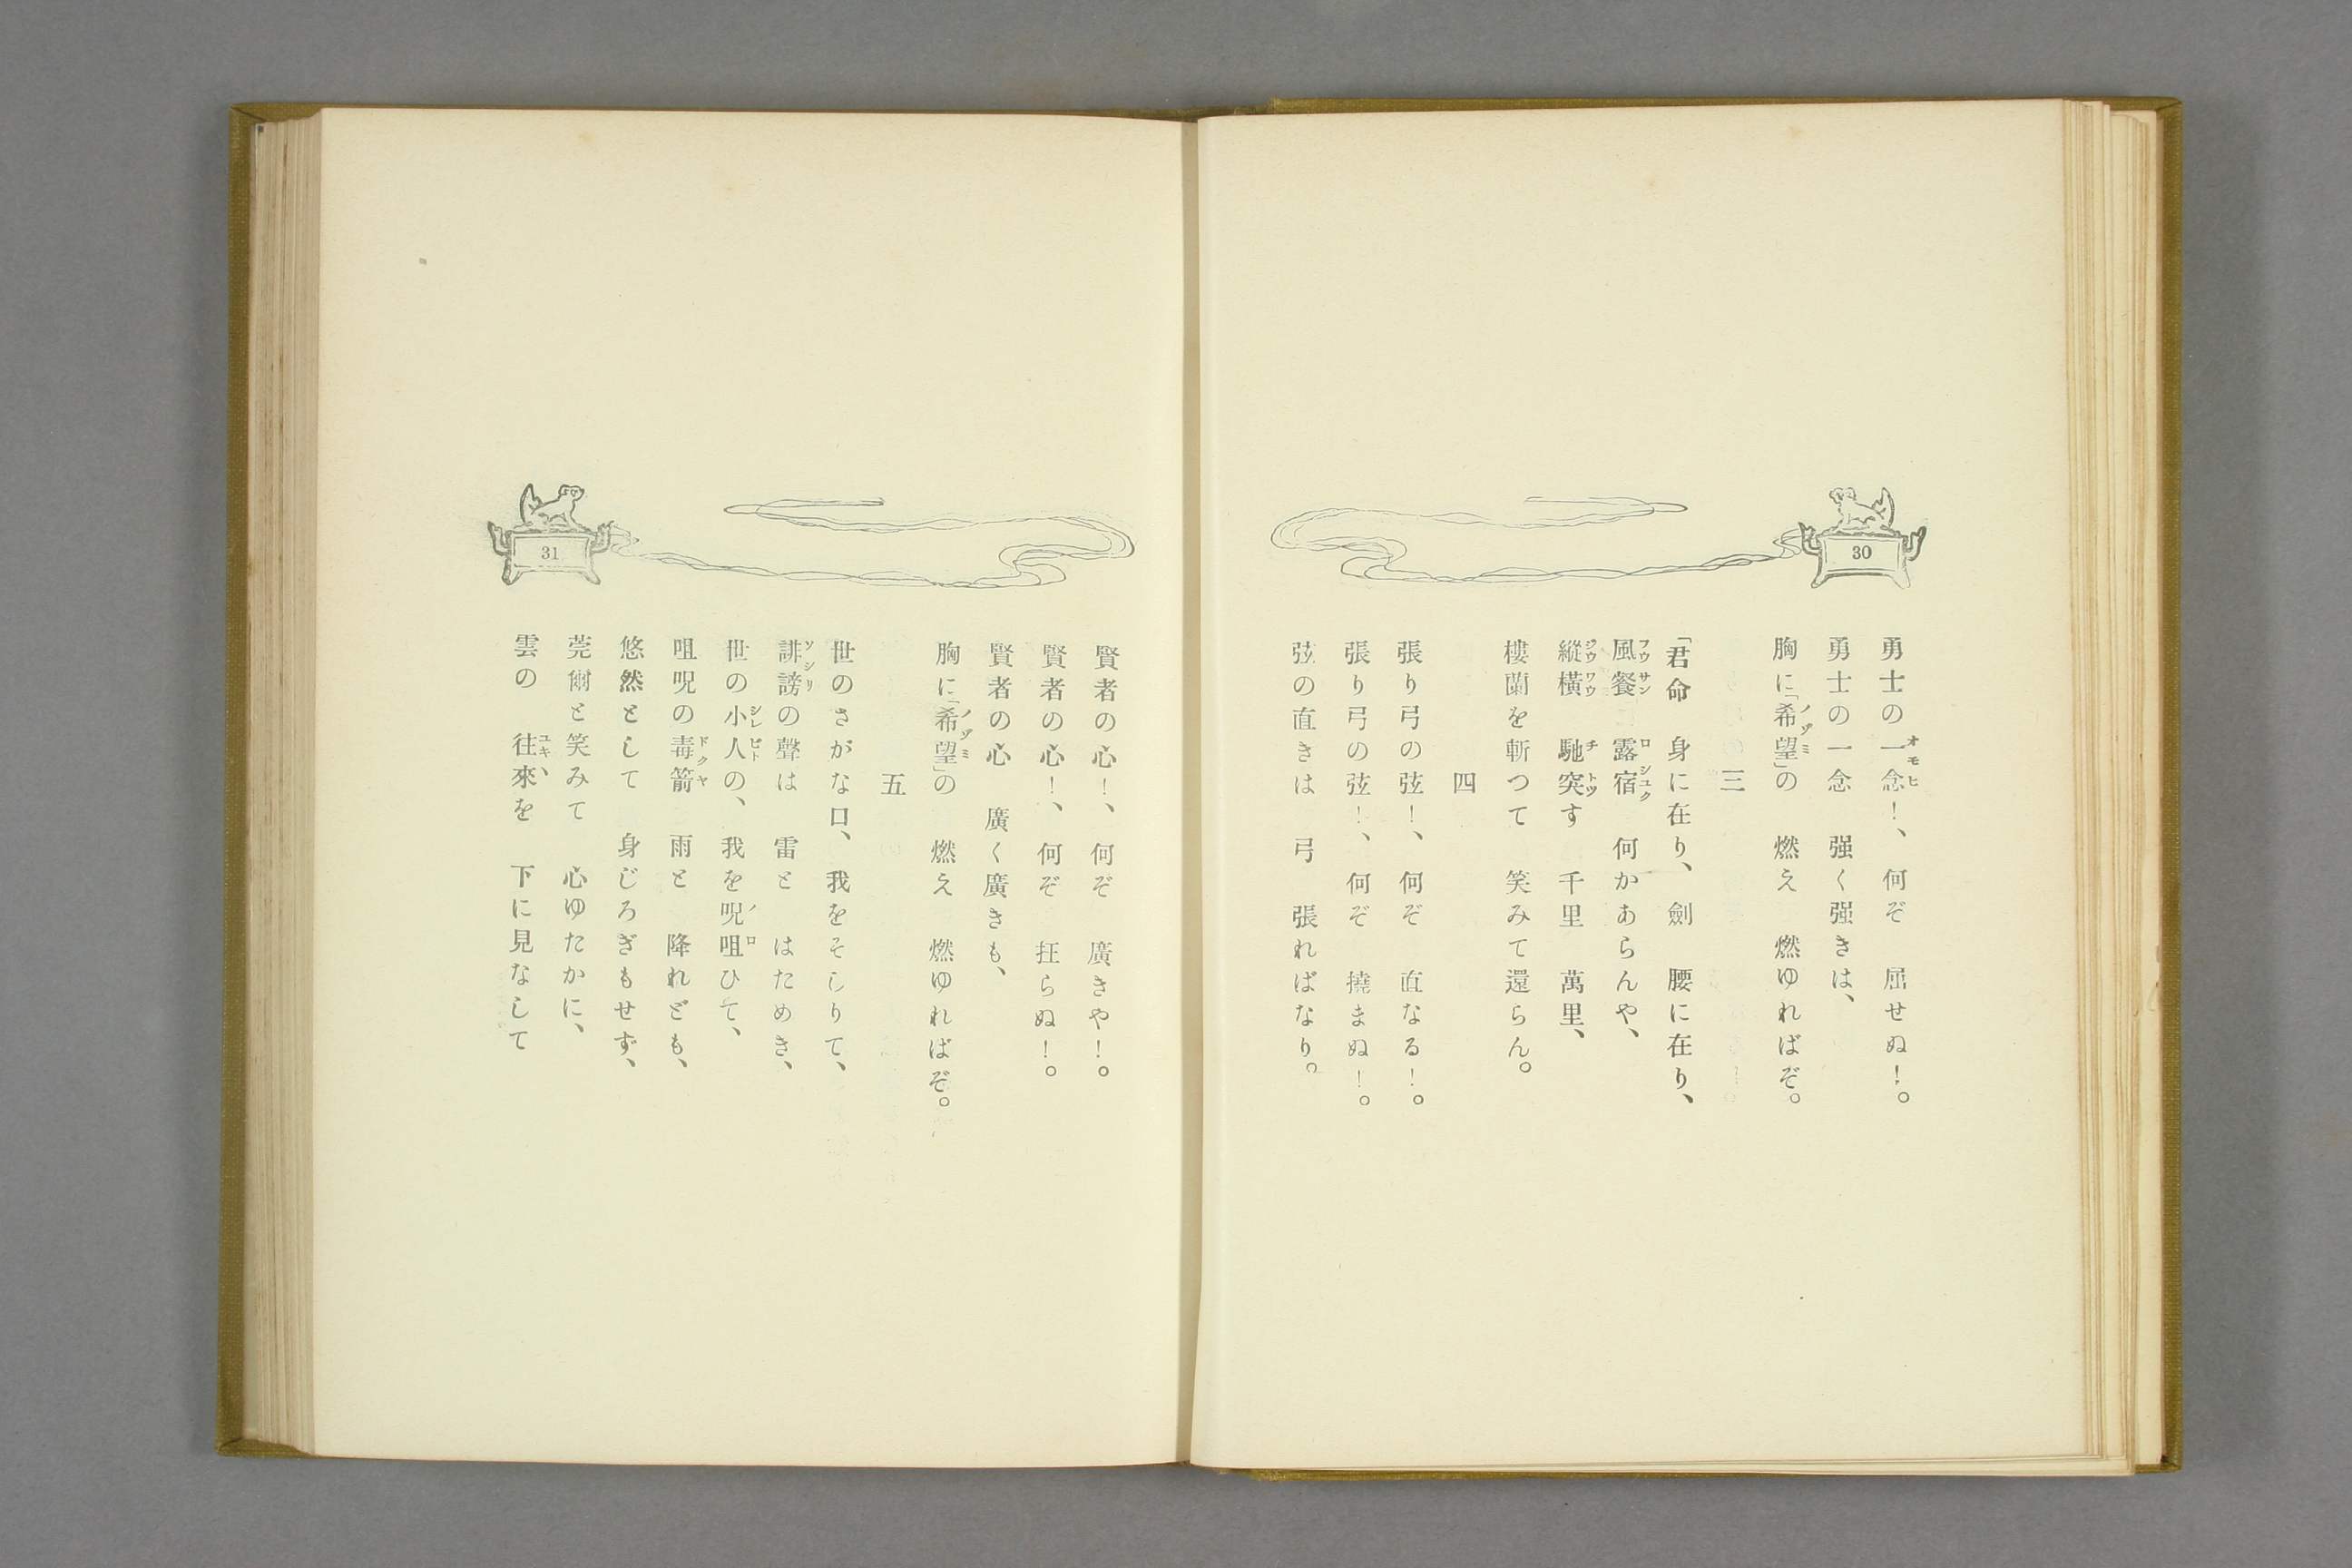 30
勇士の一念！、何ぞ　屈せぬ！。
勇士の一念　强く强きは、
胸に「希望」の　燃え　燃ゆればぞ。
三
「君命　身に在り、劍　腰に在り、
風餐　露宿　何かあらんや、
縱橫　馳突す　千里　萬里、
樓蘭を斬つて　笑みて還らん。
四
張り弓の弦！、何ぞ　直なる！。
張り弓の弦！、何ぞ　撓まぬ！。
弦の直きは　弓　張ればなり。
31
賢者の心！、何ぞ　廣きや！。
賢者の心！、何ぞ　抂らぬ！。
賢者の心　廣く廣きも、
胸に「希望」の　燃え　燃ゆればぞ。
五
世のさがな口、我をそしりて、
誹謗の聲は　雷と　はためき、
世の小人の、我を呪咀ひて、
咀呪の毒箭　雨と　降れども、
悠然として　身じろぎもせず、
莞爾と笑みて　心ゆたかに、
雲の　往來を　下に見なして